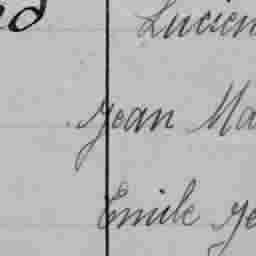 Lucien
Jean Ma
Emile Je